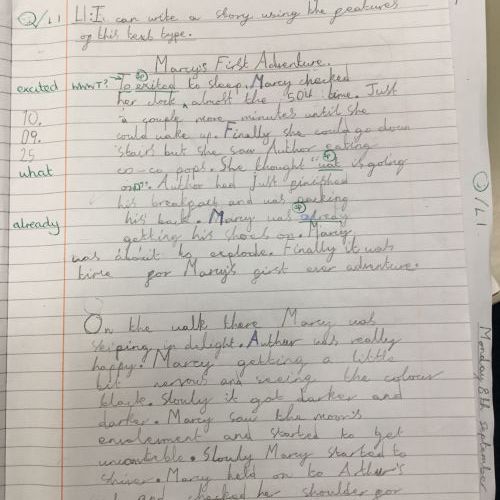 Q/L1
L1:I can write a story using the features
of this text type.
Marcy's First Adventure.
excited WHAT? To exited to sleep. Marcy checked
her clock, almost the 50th time. Just
10. a couple more minutes until she
09. could wake up. Finally she could go down
25 stairs but she saw Author eating
what co-co pops. She thought "wat is going
on". Author had just finished
his breakfast and was packing
already his back. Marcy was alreay
getting his shoes on. Marcy
was about to explode. Finally it was
time for Marcy's first ever adventure.
On the walk there Marcy was
skiping in delight. Author was really
happy. Marcy getting a little
bit nervous and seeing the colour
black. Slouly it got darker and
darker. Marcy saw the moon's
and started to get
Slowly Marcy started to
shiver. Marcy held on to Arther's
and checked her shoulder for
Q/L1
Monday 8th september